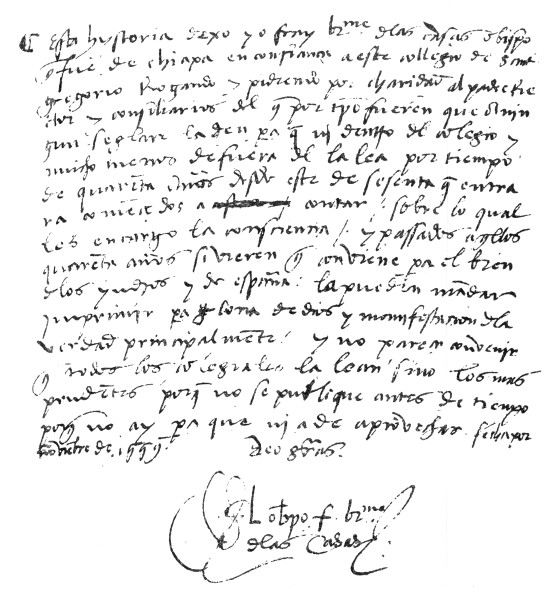 Esta hystoria dexo yo fray brme delas casas obispo
q fue de chiapa en confiança a este collegio de Sant
gregorio Rogando y pidiendo por charidad al padre Re
ctor y consiliarios del q por tpo fueren que a nin
gun seglar la den pa q ni dentro del colegio y
mucho menos de fuera del la lea por tiempo
de quarenta años desde este de sesenta q entra
ra començados a contar : sobre lo qual
les encargo la consciencia : y passados aqllos
quarenta años si vieren q conviene pa el bien
de los yndios y de españa : la pueden mandar
imprimir pa gloria de dios y manifestacion dla
verdad principalmente : y no parece convenir
q todos los colegiales la lean sino los mas
prudentes porq no se publique antes de tiempo
porq no ay pa que ni a de aprovechar fecha por
noviembre de 1559. Deo gras.
El obpo f. brme
delas Casas